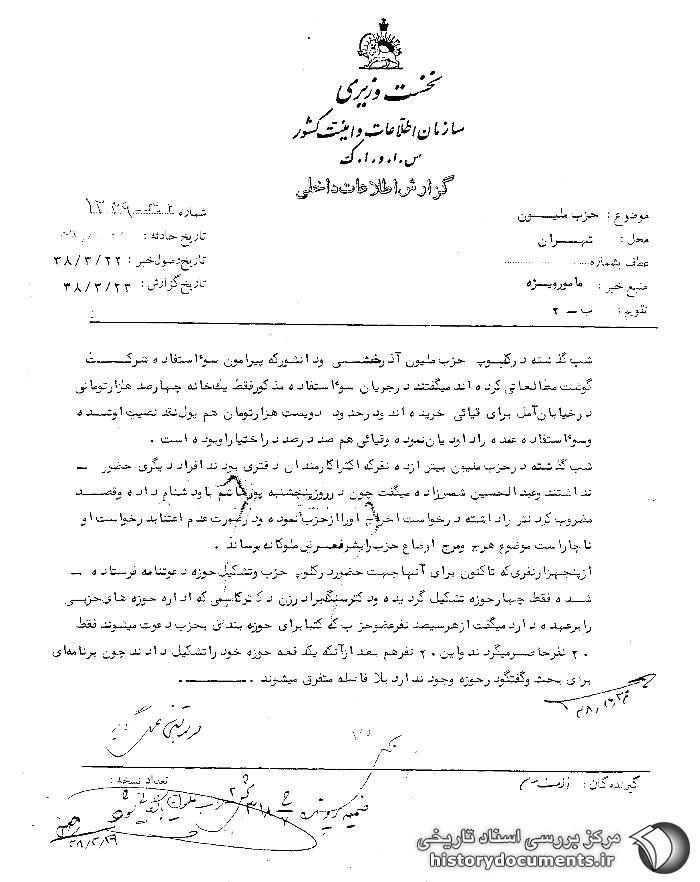 نخست وزیری
سازمان اطلاعات و امنیت کشور
س.ا.و.ا.ک
گزارش اطلاعات داخلی
موضوع : حزب ملیون
محل : تهران
عطف بشماره
منبع خبر : مامورویژه
تقویم : ب - ۲
شماره
تاریخ حادثه :
تاریخ وصول خبر : ۳۸/۳/۲۲
تاریخ گزارش : ۳۸/۳/۲۳
شب گذشته درکلوپ حزب ملیون آذرخشی و دانشورکه پیرامون سوء استفاده شرکت
گوشت مطالعاتی کرده اند میگفتند درجریان سوء استفاده مذکورفقط یکخانه چهارصد هزارتومانی
درخیابان آمل برای قبائی خریده اند ودرحدود دویست هزارتومان هم پول نقد نصیب اوشده
وسوء استفاده عمده را داودیان نموده وقبائی هم صد درصد دراختیاراوبوده است .
شب گذشته درحزب ملیون بیش ازده نفرکه اکثراکارمندان دفتری بودند افراد دیگری حضور -
نداشتند وعبدالحسین میگفت چون درروزپنجشنبه پورهاشم باودشنام داده وقصد
مضروب کردنش راداشته درخواست اخراج اورا ازحزب نموده ودرصورت عدم اعتنابدرخواست او
ناچاراست موضوع هرج ومرج اوضاع حزب رابشرفعرض ملوکانه برساند .
ازپنجهزارنفری که تاکنون برای آنها جهت حضوردرکلوپ حزب وتشکیل حوزه دعوتنامه فرستاده -
شده فقط چهارحوزه تشکیل گردیده ودکتر دکتر که اداره حوزه های حزبی
رابرعهده دارد میگفت ازهرسیصد نفرعضوحزب که کتبابرای حوزه بندی بحزب دعوت میشوند فقط
۲۰ نفرحاضرمیگردند واین ۲۰ نفرهم بعد ازآنکه یکدفعه حوزه خود راتشکیل دادند چون برنامه‌ای
برای بحث وگفتگودرحوزه وجود ندارد بلافاصله متفرق میشوند .
گیرندگان :
تعداد نسخه :
مرکز بررسی اسناد تاریخی
historydocuments.ir